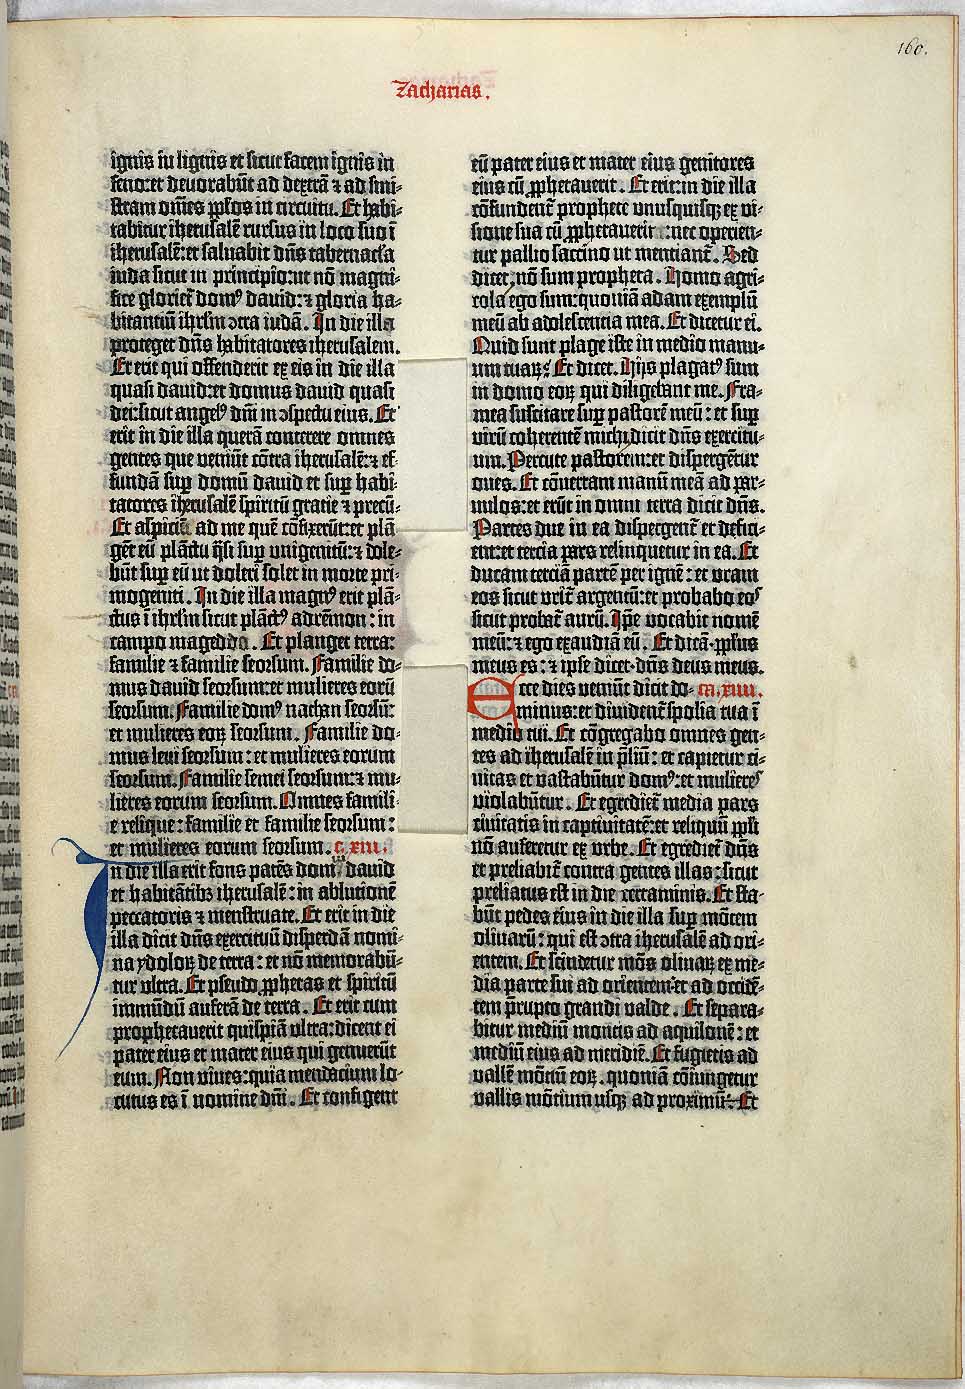 160.
Zacharias.
ignis in lignis et sicut facem ignis in
feno: et devorabūt ad dextrā ⁊ ad sini⸗
stram om̄es pp̄los in circuitu. Et habi⸗
tabitur iherusalē rursus in loco suo ī
iherusalē: et salvabit dn̄s tabernac̄la
iuda sicut in principio: ut nō magni⸗
fice gloriet̄ domꝰ david: ⁊ gloria ha⸗
bitantiū ihrl̄m ↄtra iudā. In die illa
proteget dn̄s habitatores iherusalem.
Et erit qui offenderit ex eis in die illa
quasi david: et domus david quasi
dei: sicut angelꝰ dn̄i in ↄspectu eius. Et
erit in die illa querā conterere omnes
gentes que veniūt cōtra iherusalē: ⁊ ef⸗
fundā sup̄ domū david et sup̄ habi⸗
tatores iherusalē spiritū gratie ⁊ precū⸗
Et aspiciēt ad me quē cōfixerūt: et plā⸗
gēt eū plāctu q̄si sup̄ unigenitū: ⁊ dole⸗
būt sup̄ eū ut doleri solet in morte pri⸗
mogeniti. In die illa magnꝰ erit plā⸗
ctus ī ihrl̄m sicut plāctꝰ adremon: in
campo mageddo. Et planget terra:
familie ⁊ familie seorsum. Familie do⸗
mus david seorsum: et mulieres eorū
seorsum. Familie domꝰ nathan seorsū:
et mulieres eoꝝ seorsum. Familie do⸗
mus levi seorsum: et mulieres eorum
seorsum. Familie semei seorsum: ⁊ mu⸗
lieres eorum seorsum. Omnes famili⸗
e relique: familie et familie seorsum:
et mulieres eorum seorsum. c. xiii.
In die illa erit fons patēs domui david
et habitātibꝫ iherusalē: in ablutionē
peccatoris ⁊ menstruate. Et erit in die
illa dicit dn̄s exercituū disperdā nomi⸗
na ydoloꝝ de terra: et nō memorabū⸗
tur ultra. Et pseudo ꝓphetas et spiritū
immūdū auferā de terra. Et erit cum
prophetaverit quispiā ultra: dicent ei
pater eius et mater eius qui genuerūt
eum. Non vives: quia mendacium lo⸗
cutus es ī nomine dn̄i. Et configent
eū pater eius et mater eius genitores
eius cū ꝓphetaverit. Et erit: in die illa
cōfundent̄ prophete unusquisqꝫ ex vi⸗
sione sua cū ꝓphetaverit: nec operien⸗
tur pallio saccino ut mentiant̄. Sed
dicet, nō sum propheta. Homo agri⸗
cola ego sum: quoniā adam exemplū
meū ab adolescentia mea. Et dicetur ei.
Quid sunt plage iste in medio manu⸗
um tuaꝝ? Et dicet. Hijs plagatꝰ sum
in domo eoꝝ qui diligebant me. Fra⸗
mea suscitare sup̄ pastorē meū: et sup̄
virū coherentē michi, dicit dn̄s exercitu⸗
um. Percute pastorem: et dispergētur
oves. Et cōvertam manū meā ad par⸗
vulos: et erūt in omni terra dicit dn̄s.
Partes due in ea dispergent̄ et defici⸗
ent: et tercia pars relinquetur in ea. Et
ducam terciā partē per ignē: et uram
eos sicut urit̄ argentū: et probabo eos
sicut probat̄ aurū. Ip̄e vocabit nomē
meū: ⁊ ego exaudiā eū. Et dicā. pp̄lus
meus es: ⁊ ipse dicet. dn̄s deus meus.
Ecce dies veniūt dicit do⸗ ca. xiiii.
minus: et dividenť spolia tua ī
medio tui. Et cōgregabo omnes gen⸗
tes ad iherusalē in p̄liū: et capietur ci⸗
vitas et vastabūtur domꝰ: et mulieres
violabūtur. Et egrediet̄ media pars
civitatis in captivitatē: et reliquū pp̄li
nō auferetur ex urbe. Et egrediet̄ dn̄s
et preliabit̄ contra gentes illas: sicut
preliatus est in die certaminis. Et sta⸗
būt pedes eius in die illa sup̄ mōtem
olivarū: qui est ↄtra iherusalē ad ori⸗
entem. Et scindetur mōs olivaꝝ ex me⸗
dia parte sui ad orientem et ad occidē⸗
tem p̄rupto grandi valde. Et separa⸗
bitur mediū montis ad aquilonē: et
mediū eius ad meridiē. Et fugietis ad
vallē mōtiū eoꝝ. quoniā cōiungetur
vallis mōtium usqꝫ ad proximū. Et